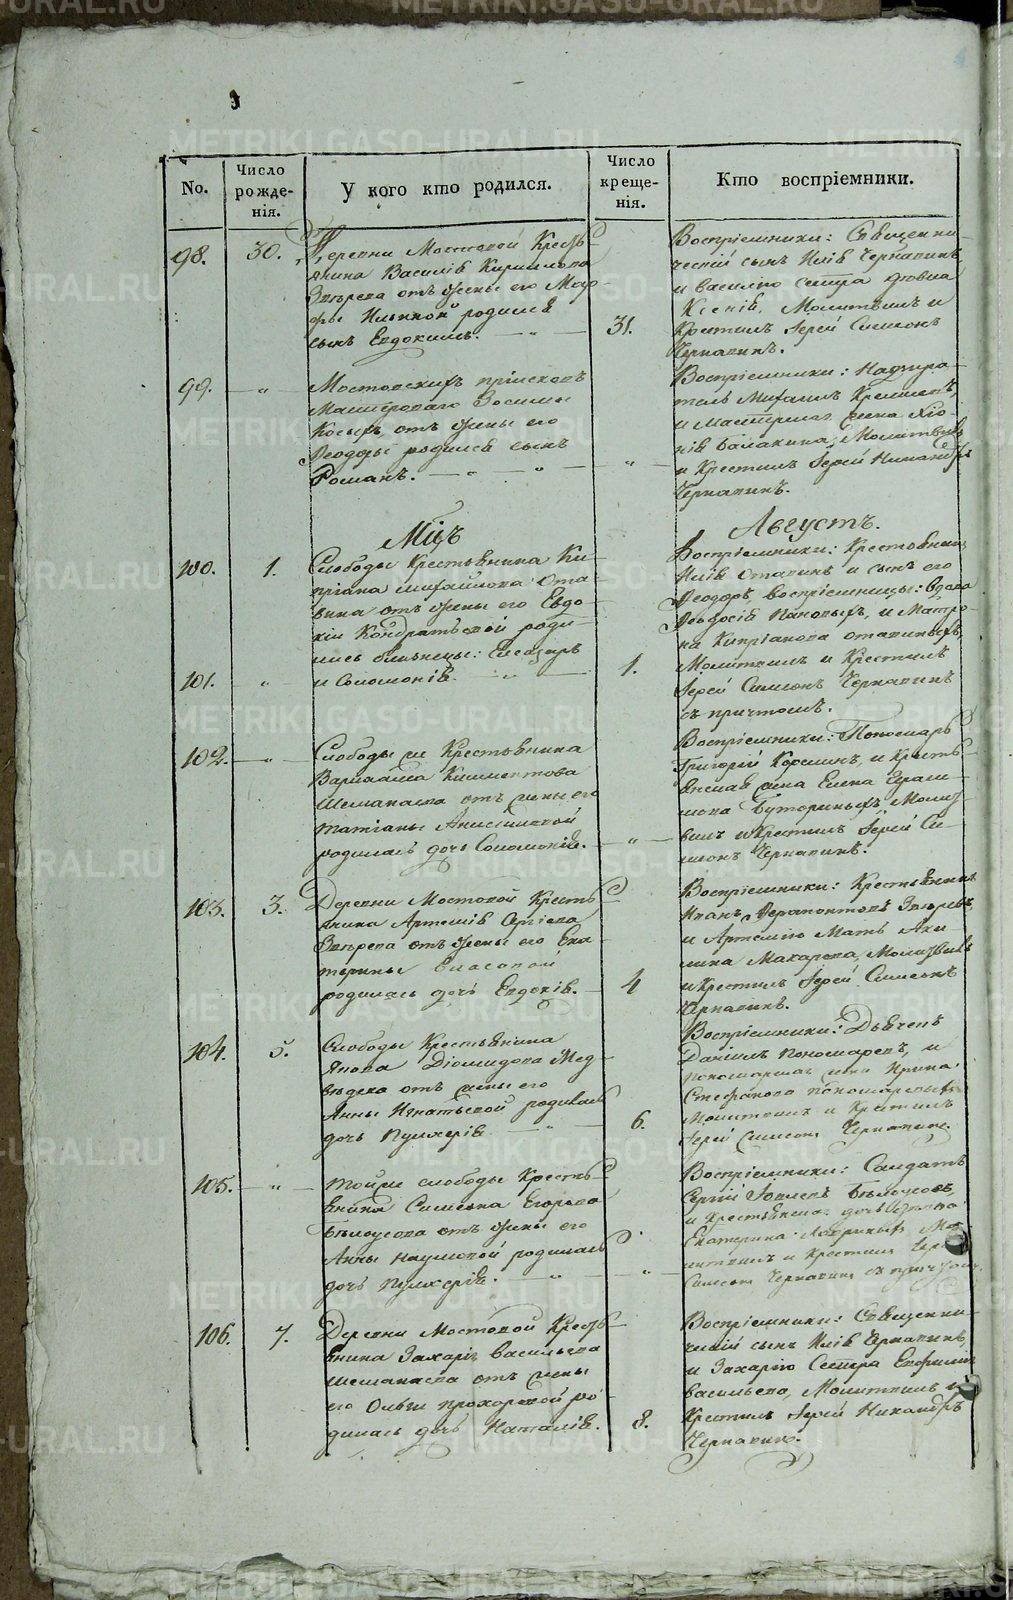 No.
Число рожде-нія.
У кого кто родился.
Число креще-нія.
Кто воспріемники.
98.
30.
Деревни Мостовой Кресть-
янина Василія Кирилова
Звѣрева отъ жены его Мар-
фы Ильиной родился
сынъ Евдокимъ.
31.
Воспріемники: Священни-
ческій сынъ Илія Чернавинъ,
и Василію сестра вдова
Ксенія, Молитвилъ и
Крестилъ Іерей Симеонъ
Чернавинъ.
99.
„
Мостовскихъ пріисковъ
Мастероваго Зосимы
Косыхъ, отъ жены его
Ѳеодоры родился сынъ
Романъ.
„
Воспріемники: Надзира-
тель Михаилъ
и Мастерска жена
Молитвилъ
и Крестилъ Іерей Никандръ
Чернавинъ.
Мцъ
Августъ.
100.
1.
Слободы Крестьянина Ки-
пріана Михайлова Ота-
вина отъ жены его Евдо-
кіи Кондратьевой роди-
лись близнецы: Елеазаръ
101.
„
и Соломонія.
1.
Воспріемники: Крестьянинъ
Илія Отавинъ и сынъ его
Ѳеодоръ, воспріемницы: вдова
Ѳеодосія Пановыхъ, и Матро-
на Кипріанова Отавиныхъ,
Молитвилъ и Крестилъ
Іерей Симеонъ Чернавинъ
съ причтомъ.
102.
„
Слободы Крестьянина
Варлаама Климентова
Шеманаева отъ жены его
Татіаны Анисимовой
родилась дочь Соломонія.
„
Воспріемники: Пономарь
Григорій Коровинъ, и Кресть-
янская жена Елена Гераси-
мова Буториныхъ, Молит-
вилъ и Крестилъ Іерей Си-
меонъ Чернавинъ.
103.
3.
Деревни Мостовой Кресть
янина Артемія Сергіева
Звѣрева отъ жены его Ека
терины Власовой
родилась дочь Евдокія.
4
Воспріемники: Крестьянинъ
Иванъ Ферапонтовъ Звѣревъ,
и Артемію Мать Аки-
лина Макарова, Молитвилъ
и Крестилъ Іерей Симеонъ
Чернавинъ.
104.
5.
Слободы Крестьянина
Якова Діомидова Мед
вѣдева отъ жены его
Анны Игнатьевой родилась
дочь Пулхерія
6.
Воспріемники: Дьячекъ
Даніилъ Пономаревъ, и
пономарска жена Ирина
Стефанова Пономаревыхъ
Молитвилъ и Крестилъ
Іерей Симеонъ Чернавинъ.
105.
„
Тойже слободы Кресть
янина Симеона Егорова
Бѣлоусова отъ жены его
Анны Наумовой родилась
дочь Пулхерія.
„
Воспріемники: Солдатъ
Сергій Іовлевъ Бѣлоусовъ,
и крестьянска дочь
Екатерина Мо
литвилъ и крестилъ Іерей
Симеонъ Чернавинъ съ причтомъ.
106.
7.
Деревни Мостовой Кресть
янина Захарія Васильева
Шеманаева отъ жены
его Ольги Прохоровой ро
дилась дочь Наталія.
8.
Воспріемники: Священни-
ческій сынъ Илія Чернавинъ,
и Захарію Сестра Евфимія
Васильева, Молитвилъ и
Крестилъ Іерей Никандръ
Чернавинъ.
METRIKI.GASO-URAL.RU